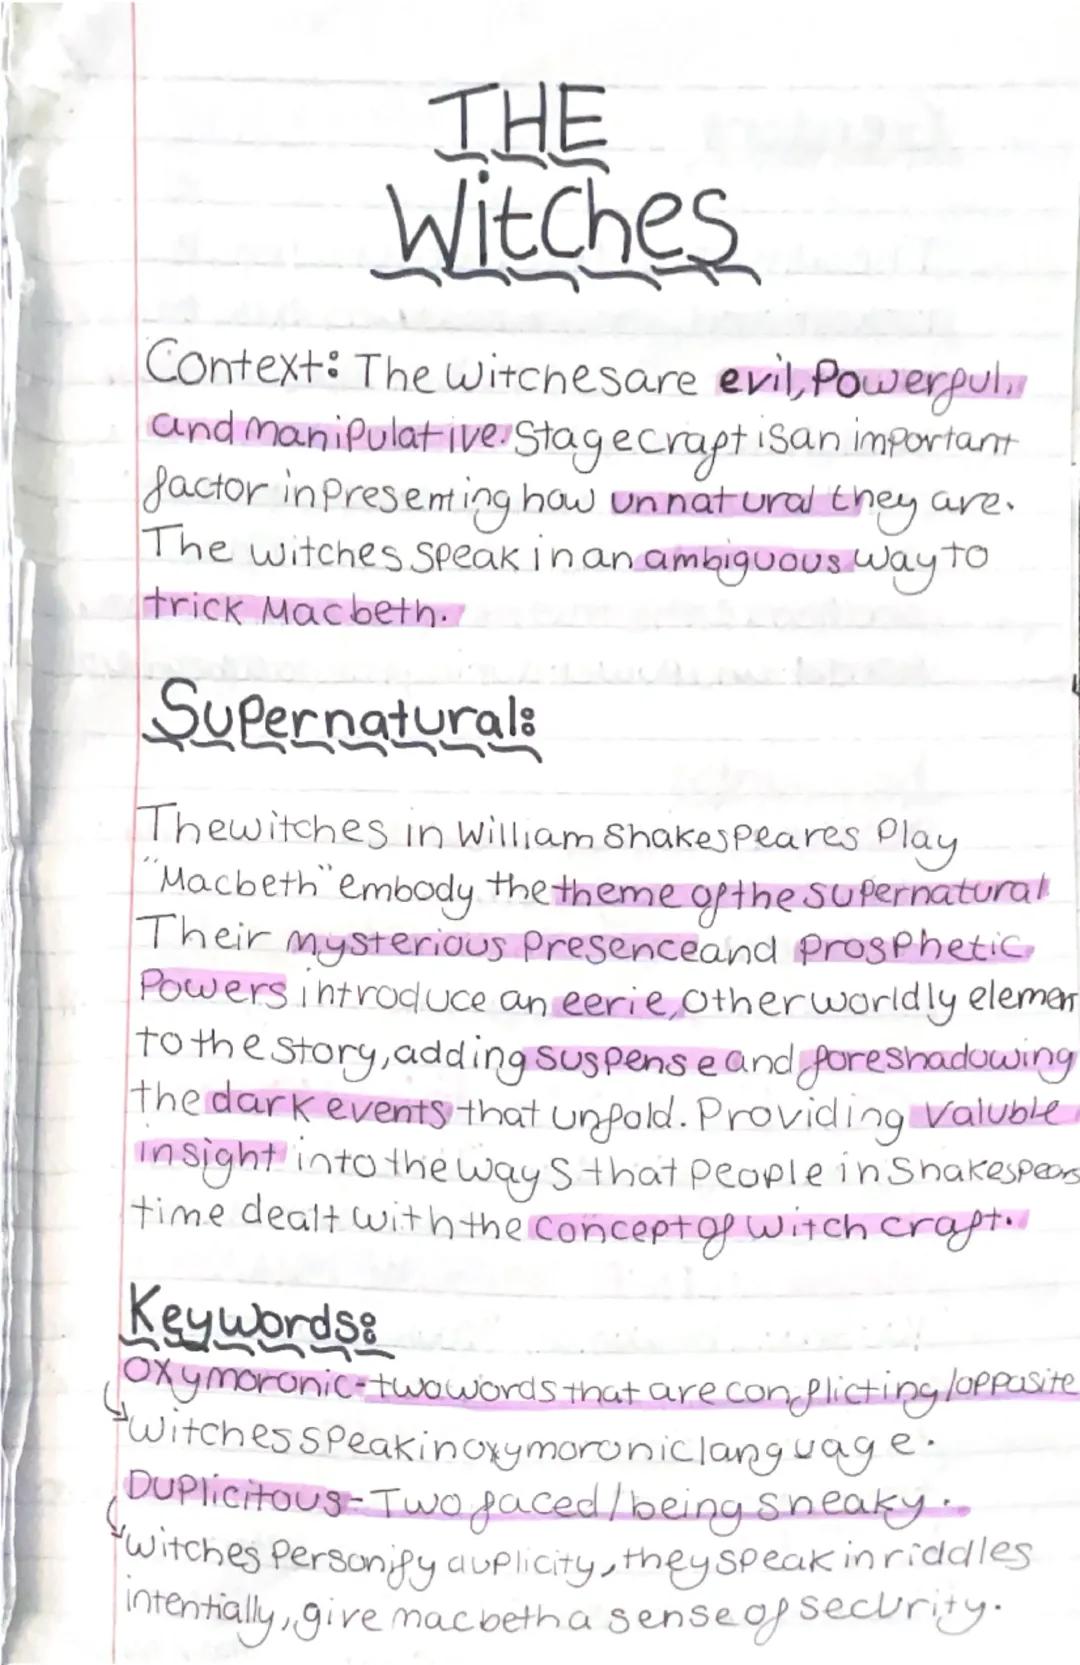 THE
Witches
Context: The witches are evil, Powerful,
and manipulative. Stagecraft is an important
factor in presenting how unnatural they are.
The witches speak in an ambiguous way to
trick Macbeth.
Supernatural:
The witches in William Shakespeares Play
"Macbeth" embody the theme of the supernatural
Their mysterious presence and prosphetic
Powers introduce an eerie, otherworldly elemen
to the story, adding suspense and foreshadowing
the dark events that unfold. Providing valuble
insight into the ways that people in Shakespears
time dealt with the concept of witch craft.
Keywords:
Oxymoronic - two words that are conflicting/opposite
Witches speak in oxymoronic language.
Duplicitous - Two faced/being sneaky.
Witches Personify duplicity, they speak in riddles
intentially, give macbeth a sense of security.